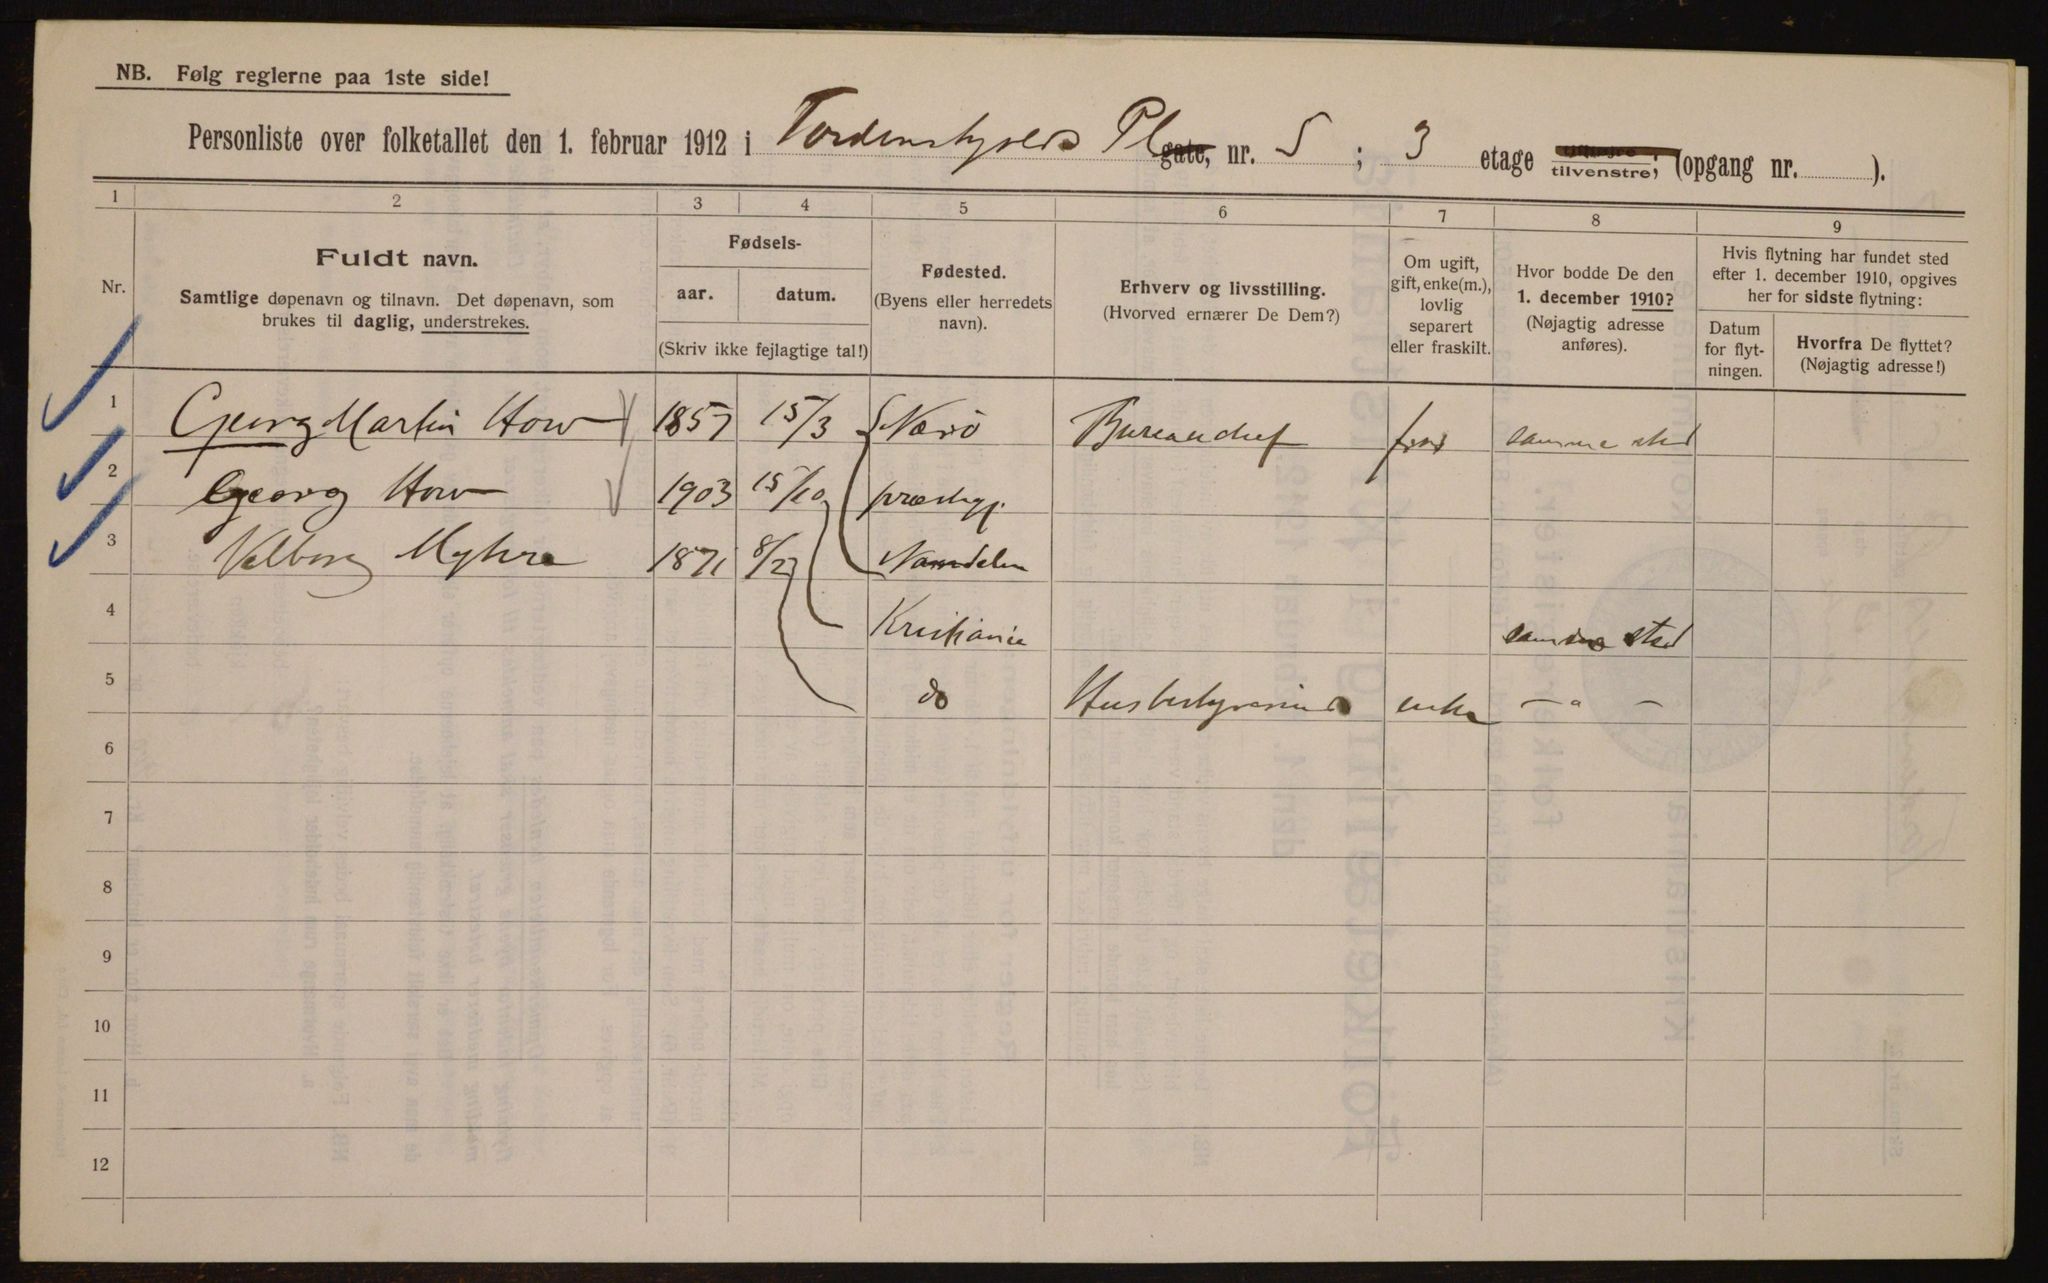 NB. Følg reglerne paa 1ste side!
Personliste over folketallet den 1. februar 1912 i Tordenskjolds Pl gate, nr. 5 ; 3 etage tilvenstre; (opgang nr. ).
1 2 3 4 5 6 7 8 9
Nr.
Fuldt navn.
Samtlige døpenavn og tilnavn. Det døpenavn, som
brukes til daglig, understrekes.
Fødsels-
aar. datum.
(Skriv ikke fejlagtige tal!)
Fødested.
(Byens eller herredets
navn).
Erhverv og livsstilling.
(Hvorved ernærer De Dem?)
Om ugift,
gift, enke(m.),
lovlig
separert
eller fraskilt.
Hvor bodde De den
1. december 1910?
(Nøjagtig adresse
anføres).
Hvis flytning har fundet sted
efter 1. december 1910, opgives
her for sidste flytning:
Datum
for flyt-
ningen.
Hvorfra De flyttet?
(Nøjagtig adresse!)
1 Georg Martin How 1857 15/3 Nærö Bureauchef samme sted
2 Georg How 1903 15/10 præstegj.
3 Valborg Myhre 1871 8/2 Namdalen
4 Kristiania samme sted
5 do Husbestyrerinde enke - " -
6
7
8
9
10
11
12